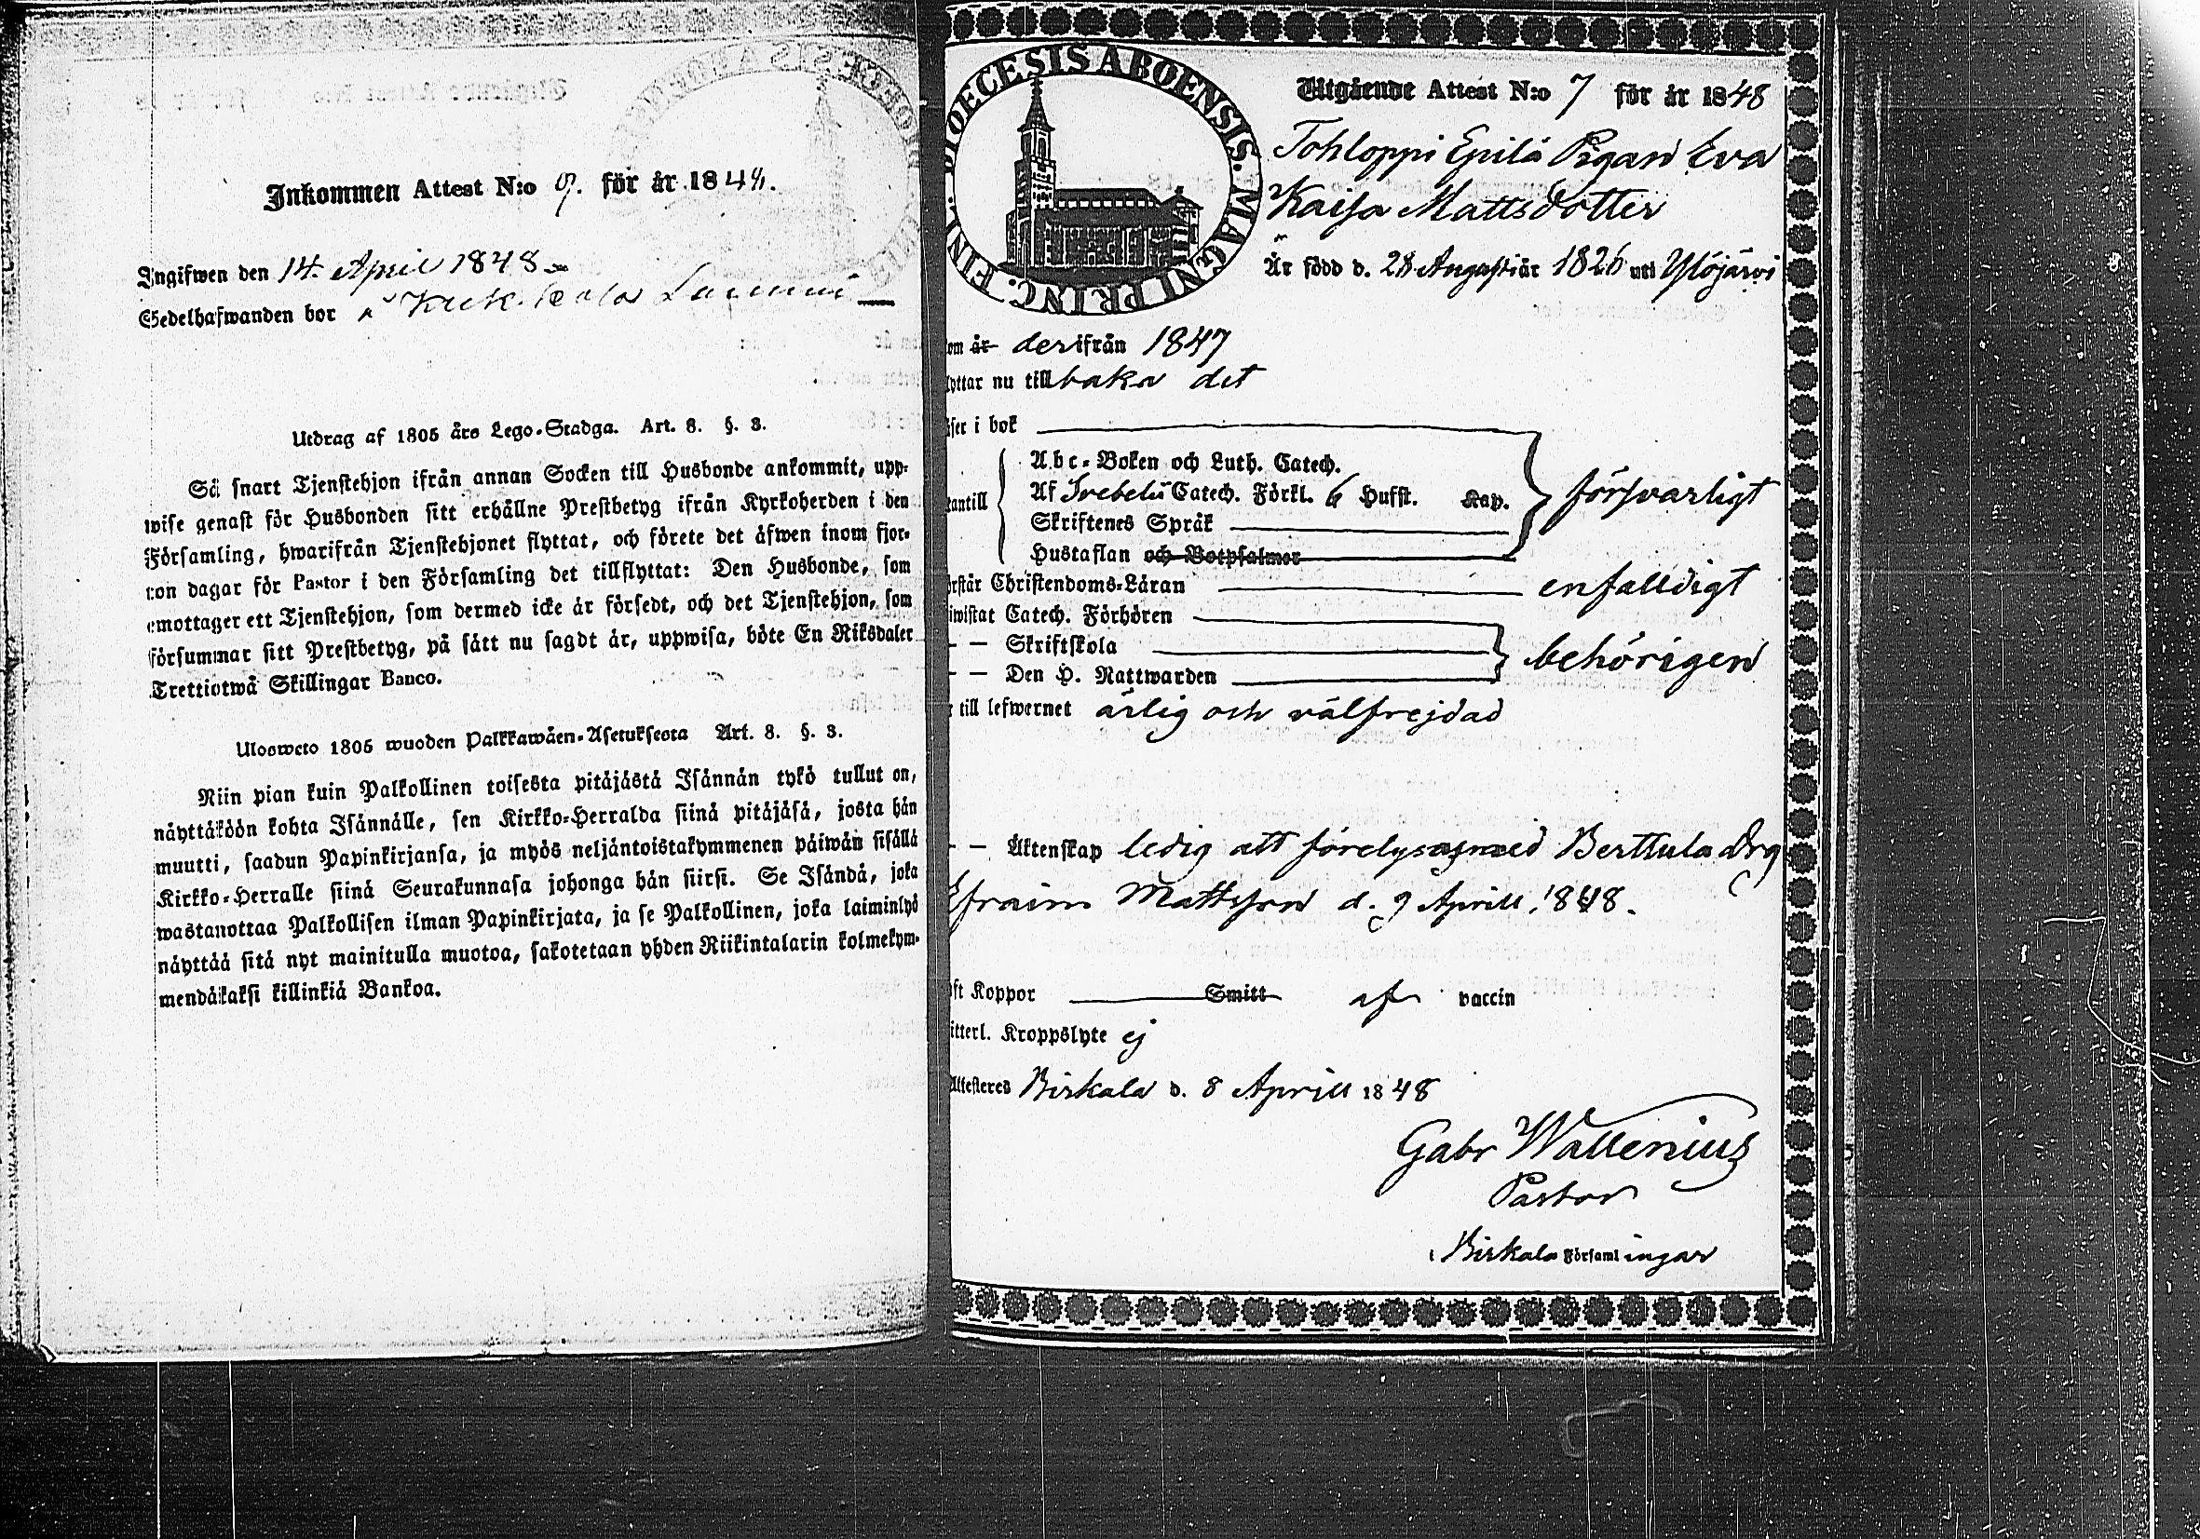 Inkommen Attest N:o 9. för år 1848.
Ingifwen den 14. April 1848
Sedelhafwanden bor
Utdrag af 1805 års Lego-Stadga. Art. 8. §. 3.
Så snart Tjenstehjon ifrån annan Socken till Husbonde ankommit, upp-
wise genast för Husbonden sitt erhållne Prestbetyg ifrån Kyrkoherden i den
Församling, hwarifrån Tjenstehjonet flyttat, och förete det äfwen inom fjor-
ton dagar för Pastor i den Församling det tillflyttat: Den Husbonde, som
emottager ett Tjenstehjon, som dermed icke är försedt, och det Tjenstehjon, som
försummar sitt Prestbetyg, på sätt nu sagdt är, uppwisa, böte En Riksdaler
Trettiotwå Skillingar Banco.
Ulosweto 1805 wuoden Palkkawäen-Asetuksesta Art. 8. §. 3.
Niin pian kuin Palkollinen toisesta pitäjästä Isännän tykö tullut on,
näyttäköön kohta Isännälle, sen Kirkko-Herralda siinä pitäjäsä, josta hän
muutti, saadun Papinkirjansa, ja myös neljäntoistakymmenen päiwän sisällä
Kirkko-Herralle siinä Seurakunnasa johonga hän siirsi. Se Isändä, joka
wastanottaa Palkollisen ilman Papinkirjata, ja se Palkollinen, joka laiminlyö
näyttää sitä nyt mainitulla muotoa, sakotetaan yhden Riikintalarin kolmekym-
mendäkaksi killinkiä Bankoa.
DIOECESIS ABOENSIS. MAGNI PRINC. FINL.
Utgående Attest N:o 7 för år 1848
Tohloppi Epilä Pigan Eva
Kaisa Mattsdotter
Är född d. 28 Augusti år 1826 uti Ylöjärvi
om år derifrån 1847
lyttar nu tillbaka det
äser i bok
Abc-Boken och Luth. Catech.
antill Af Svebelii Catech. Förkl. 6 Hufst. Kap. försvarligt
Skriftenes Språk
Hustaflan och Botpsalmer
örstår Christendoms-Läran enfalldigt
iwistat Catech. Förhören
– – Skriftskola behörigen
– – Den H. Nattwarden
till lefwernet ärlig och välfrejdad
– – Äktenskap ledig att förelysas med Berttula Drg
Efraim Mattsson d. 9 Aprill 1848.
ft Koppor Smitt af vaccin
itterl. Kroppslyte ej
Attesteres Birkala d. 8 Aprill 1848
Gabr Wallenius
Pastor
i Birkala Församlingar